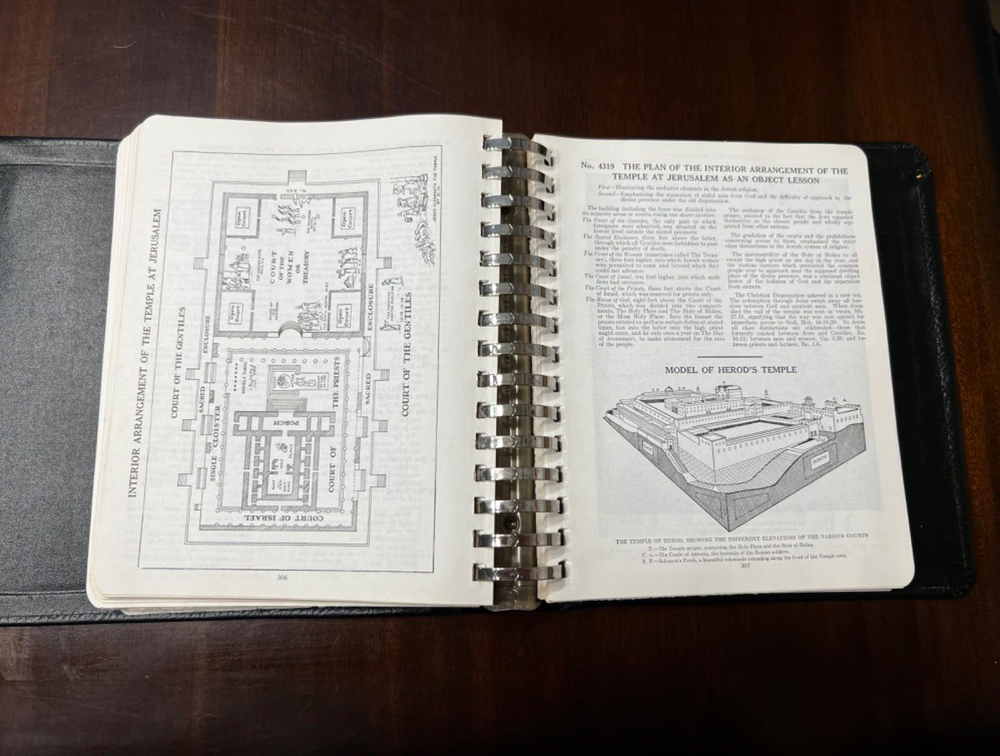 INTERIOR ARRANGEMENT OF THE TEMPLE AT JERUSALEM
COURT OF THE GENTILES
SACRED ENCLOSURE
SINGLE CLOISTER
Open Court
Open Court
COURT
OF THE
WOMEN
OR
TREASURY
Open Court
Open Court
PORCH
COURT OF THE PRIESTS
COURT OF ISRAEL
SACRED ENCLOSURE
COURT OF THE GENTILES
306
No. 4319 THE PLAN OF THE INTERIOR ARRANGEMENT OF THE
TEMPLE AT JERUSALEM AS AN OBJECT LESSON
First—Illustrating the exclusive elements in the Jewish religion.
Second—Emphasizing the separation of sinful man from God and the difficulty of approach to the
divine presence under the old dispensation.
The building including the fence was divided into
six separate areas or courts rising one above another.
The Court of the Gentiles, the only part to which
foreigners were admitted, was situated on the
lowest level outside the sacred precincts.
The Sacred Enclosure, three feet above the latter,
through which all Gentiles were forbidden to pass
under the penalty of death.
The Court of the Women (sometimes called The Treas-
ury), three feet higher, into which Jewish women
were permitted to come and beyond which they
could not advance.
The Court of Israel, ten feet higher, into which male
Jews had entrance.
The Court of the Priests, three feet above the Court
of Israel, which was reserved for priests only.
The House of God, eight feet above the Court of the
Priests, which was divided into two compart-
ments, The Holy Place and The Holy of Holies,
or the Most Holy Place. Into the former the
priests entered to perform certain duties at stated
times, but into the latter only the high priest
might enter, and he only once a year on The Day
of Atonement, to make atonement for the sins
of the people.
The exclusion of the Gentiles from the temple
proper, pointed to the fact that the Jews regarded
themselves as the chosen people and wholly sep-
arated from other nations.
The gradation of the courts and the prohibitions
concerning access to them, emphasized the strict
class distinctions in the Jewish system of religion.
The inaccessibility of the Holy of Holies to all
except the high priest on one day in the year, and
the various barriers which prevented the common
people ever to approach near the supposed dwelling
place of the divine presence, was a continual object
lesson of the holiness of God and his separation
from sinners.
The Christian Dispensation ushered in a new era.
The redemption through Jesus swept away all bar-
riers between God and penitent men. When Jesus
died the veil of the temple was rent in twain, Mt.
27:51, signifying that the way was now opened for
immediate access to God, Heb. 10:19,20. In Jesus
all class distinctions are obliterated—those that
formerly existed between Jews and Gentiles, Ro.
10:12; between men and women, Ga. 3:28; and be-
tween priests and laymen, Re. 1:6.
MODEL OF HEROD'S TEMPLE
THE TEMPLE OF HEROD, SHOWING THE DIFFERENT ELEVATIONS OF THE VARIOUS COURTS
T.—The Temple proper, containing the Holy Place and the Holy of Holies.
C. A.—The Castle of Antonia, the barracks of the Roman soldiers.
S. P.—Solomon's Porch, a beautiful colonnade extending along the front of the Temple area.
307